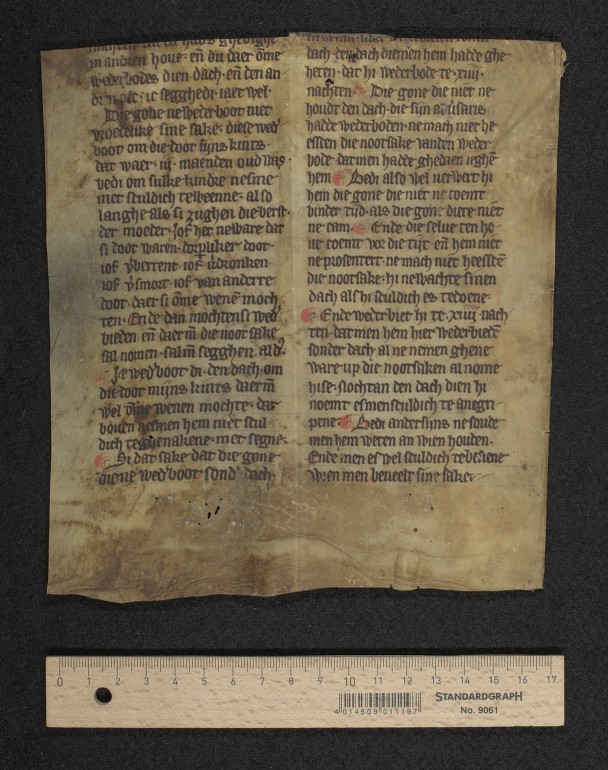 in andren houe · en̄ du daer ōme
wederbodes dien dach · en̄ den an-
dren niet · ic segghedi · iaet wel ·
Die gone ne wederboot niet
vroedelike sine sake · diese wed'
boot om die doot sijns kints ·
dat waer · iij · maenden oud was ·
bedi om sulke kindre ne sine
niet sculdich te weenne · also
langhe als si zughen die berst ·
der moeder · Jof het ne ware dat
si doot waren · doot ·
iof v'berrent · iof v'dronken ·
iof v'smort · iof van anderre
doot · daer si ōme wenē moch
ten · Ende dan mochten si wed'
bieden · en̄ daerm̄ die noot sake
sal nomen · salm̄ segghen ald' ·
Ic wed'boot di · den dach · om
die doot mijns kints daerm̄
wel ōme wenen mochte · dar
bouen ne sinen hem niet scul
dich teghenakene · met segne ·
Si dat sake dat die gone
die ne wed'boot sond' dach ·
dach · den dach diemen hem hadde ghe-
heten · dat hi wederbode te · xiiij ·
nachten · Die gone die niet ne
houdt den dach · die sijn adūsaris
hadde wederboden · ne mach niet he-
esscen die noot sake vanden weder
bode · datmen hadde ghedaen ieghē
hem Bedi also wel vierwert hi
hem die gone die niet ne coemt
binder tijd · als die gone diere niet
ne cam · Ende die selue ten ho-
ue coemt vor die tijt · en̄ hem niet
ne prosenteert · ne mach niet heesscē
die nootsake · hi ne wachte sinen
dach als hi sculdich es te doene ·
Ende wederbiet hi te · xiiij nach
ten · dat men hem hiet wederbiedē
sonder dach · al ne nemen ghene
ware up die nootsaken al nome
hise · slochtan den dach dien hi
noemt es men sculdich te anegri
pene · Bedi andersijns ne soude
men hem weten an wien houden ·
Ende men es wel sculdich te
wien men beueelt sine sake ·
0 1 2 3 4 5 6 7 8 9 10 11 12 13 14 15 16 17
4 014509 011197
STANDARDGRAPH
No. 9061